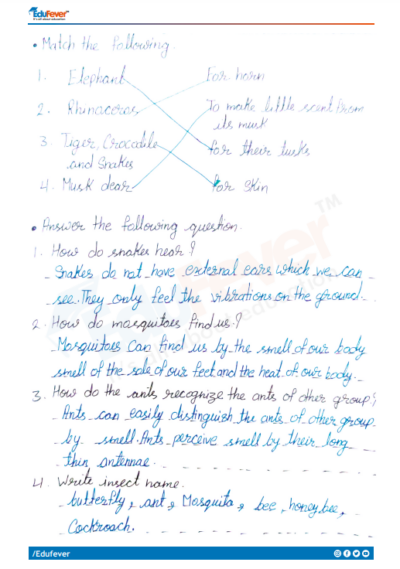 EduFever
• Match the following.
1. Elephant For horn
2. Rhinaceros To make little scent from
its musk
3. Tiger, Crocodile for their tusks
and Snakes
4. Musk dear for skin
• Answer the following question.
1. How do snakes hear?
Snakes do not have external ears which we can
see. They only feel the vibrations on the ground.
2. How do mosquitoes find us?
Mosquitoes can find us by the smell of our body
smell of the sole of our feet and the heat of our body.
3. How do the ants recognize the ants of other group?
Ants can easily distinguish the ants of other group
by smell. Ants perceive smell by their long
thin antennae.
4. Write insect name.
butterfly, ant, Mosquito, bee, honey bee,
Cockroach.
/Edufever